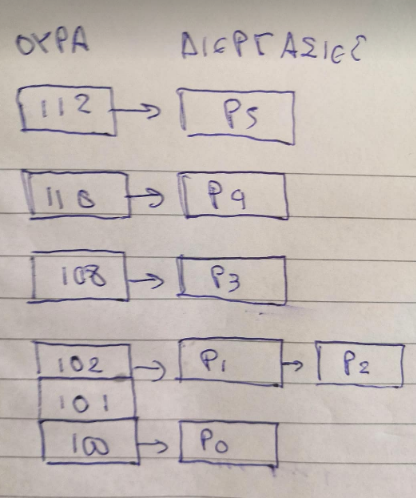 ΟΥΡΑ ΔΙΕΡΓΑΣΙΕΣ
112 P5
110 P4
108 P3
102 P1 P2
101
100 P0